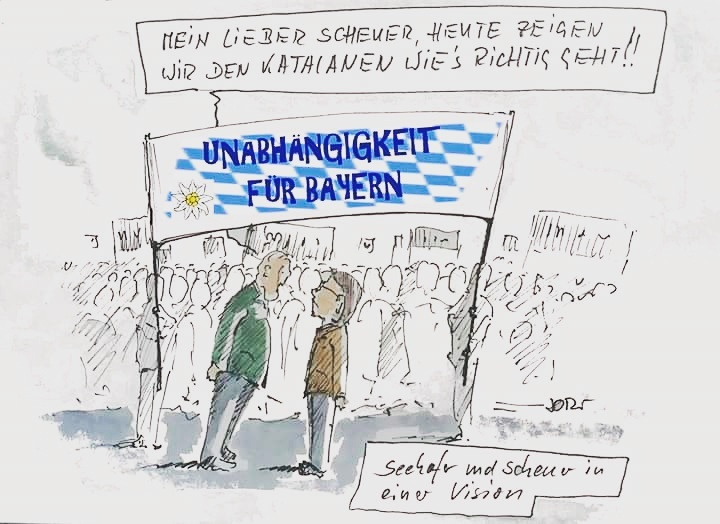 MEIN LIEBER SCHEUER, HEUTE ZEIGEN
WIR DEN KATALANEN WIE'S RICHTIG GEHT!!
UNABHÄNGIGKEIT
FÜR BAYERN
Seehofer und Scheuer in
einer Vision